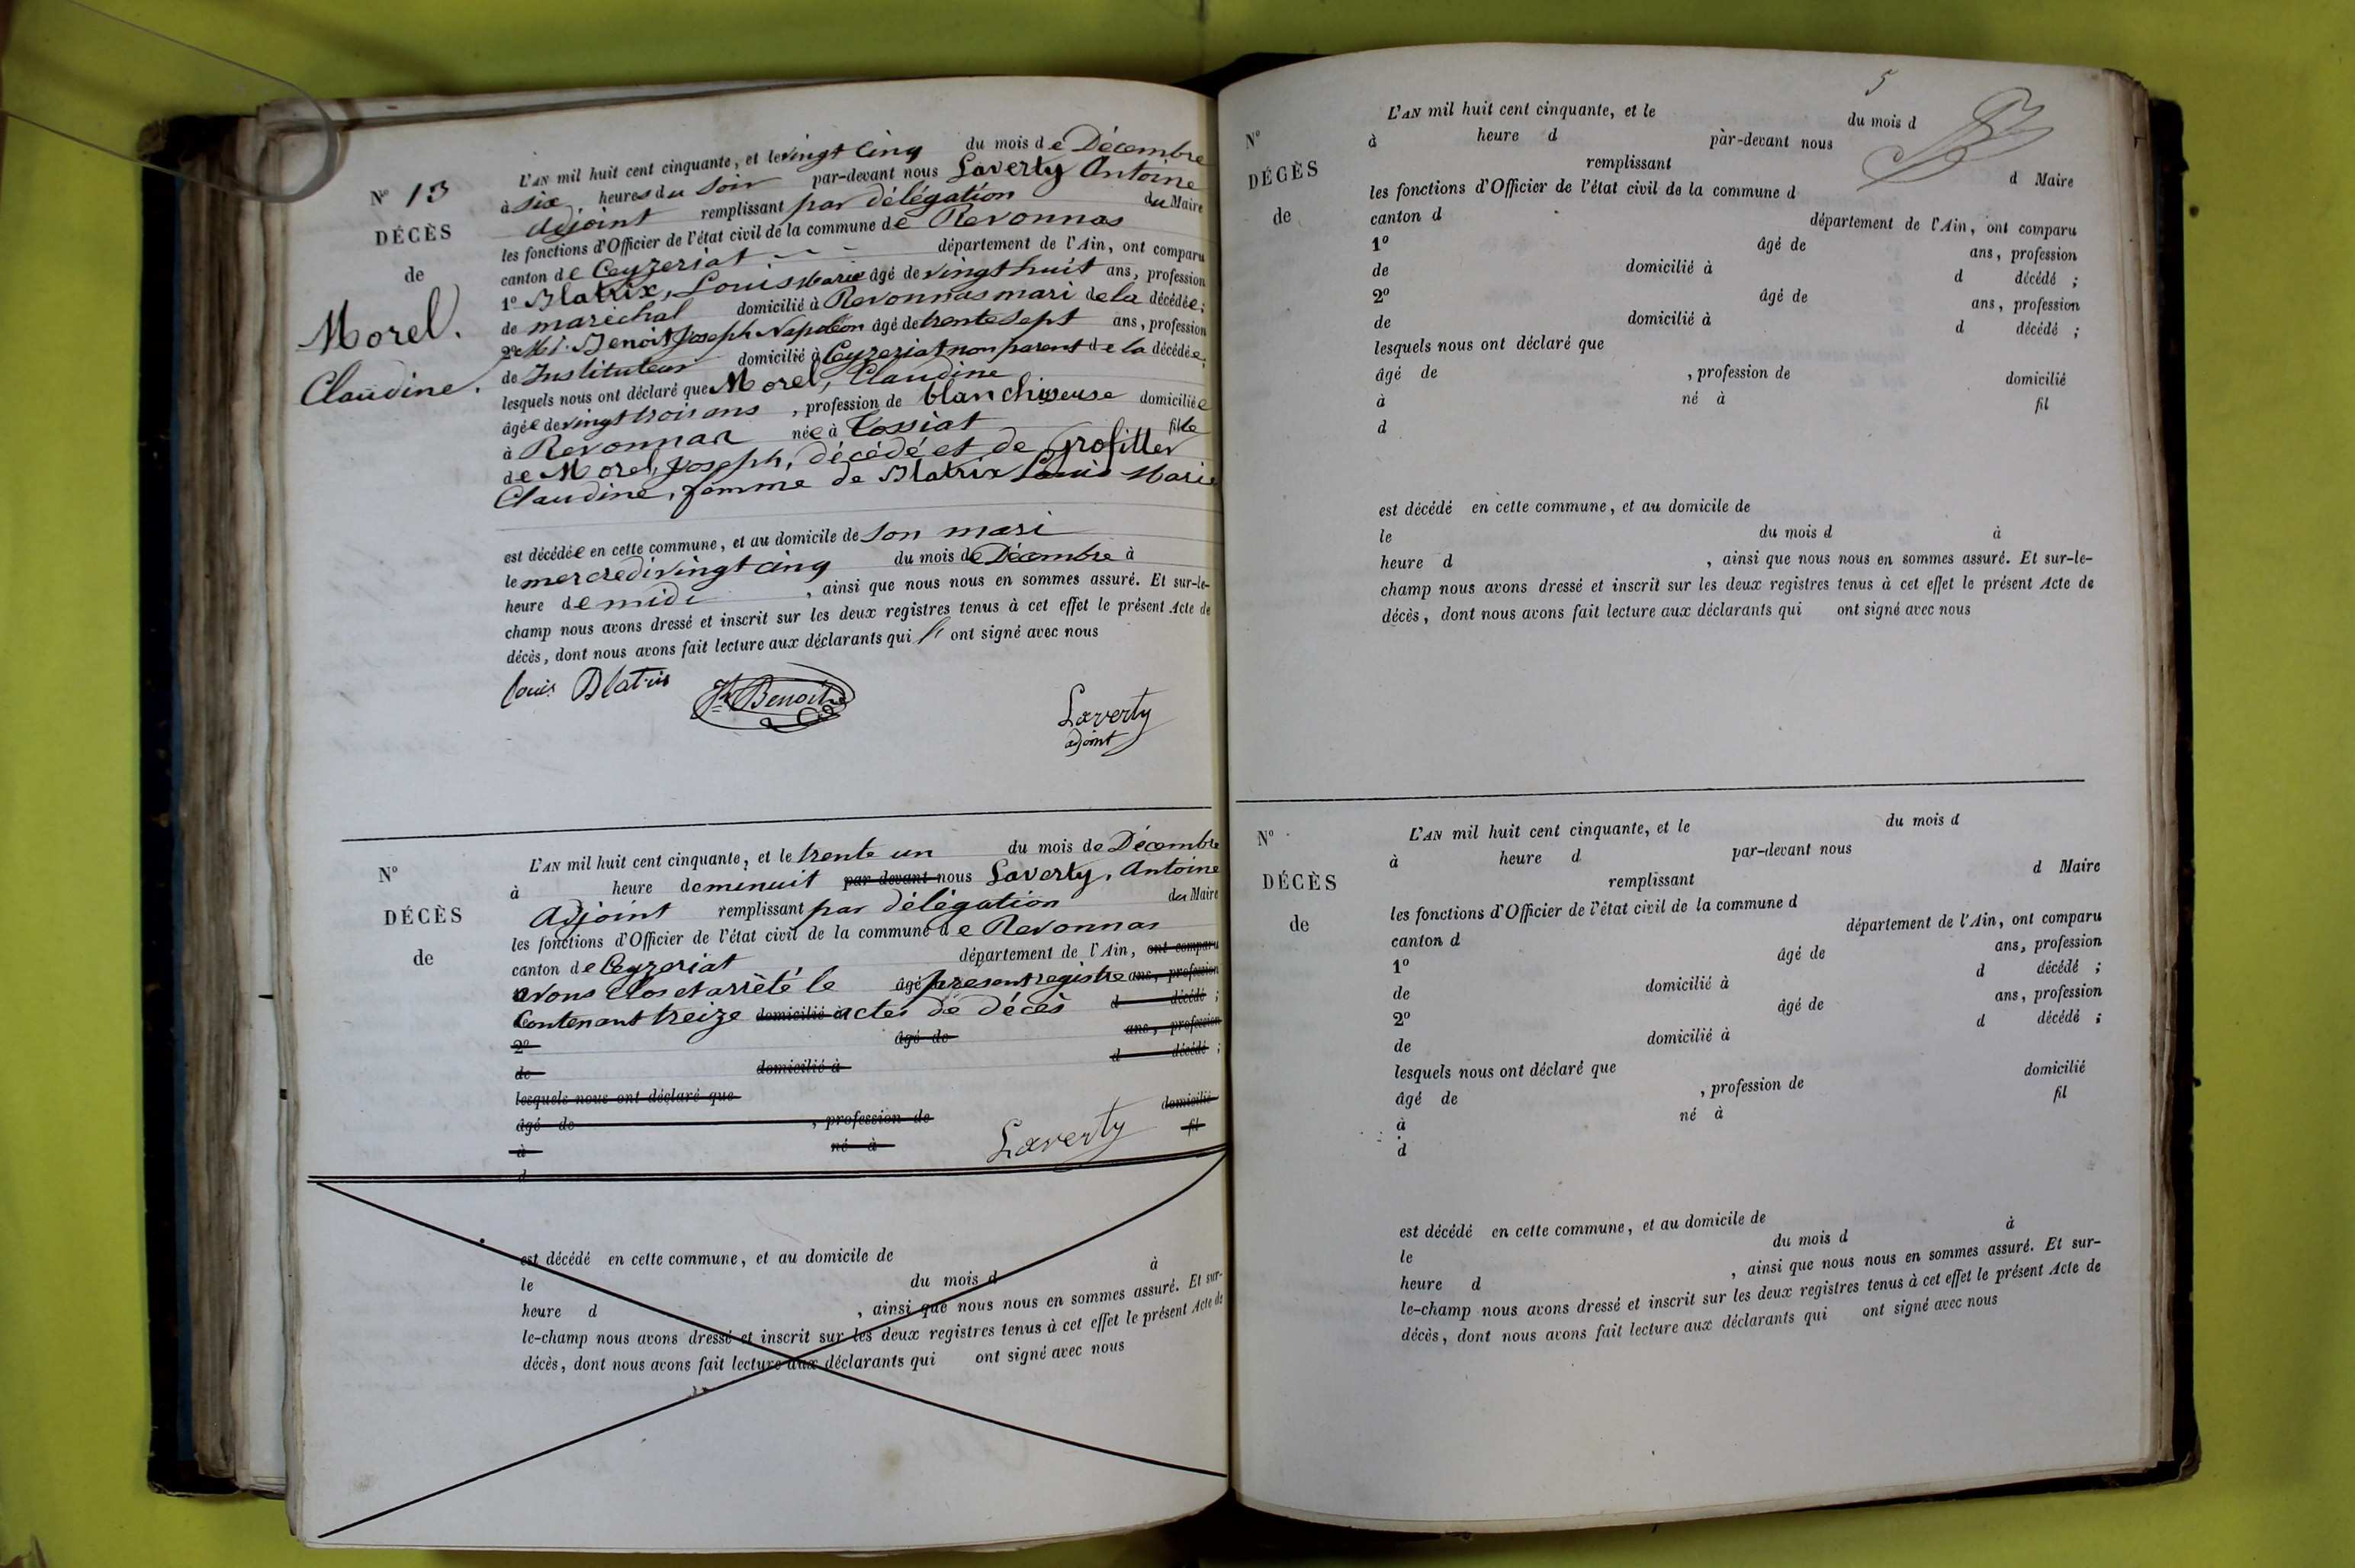 N° 13
DÉCÈS
de
Morel.
Claudine.
L'AN mil huit cent cinquante, et le vingt cinq du mois de Décembre
à six, heures du soir par-devant nous Laverty Antoine
adjoint remplissant par délégation du Maire
les fonctions d'Officier de l'état civil de la commune de Revonnas
canton de Ceyzeriat département de l'Ain, ont comparu
1° Blatrix, Louis Marie âgé de vingt huit ans, profession
de maréchal domicilié à Revonnas mari de la décédée;
2° Benoit Joseph Napoléon âgé de trente sept ans, profession
de Instituteur domicilié à Ceyzeriat non parent de la décédée;
lesquels nous ont déclaré que Morel, Claudine
âgée de vingt trois ans, profession de blanchisseuse domiciliée
à Revonnas née à Tossiat fille
de Morel, Joseph, décédé et de Profitter
Claudine, femme de Blatrix Louis Marie
est décédée en cette commune, et au domicile de son mari
le mercredi vingt cinq du mois de Décembre à
heure de midi, ainsi que nous nous en sommes assuré. Et sur-le-
champ nous avons dressé et inscrit sur les deux registres tenus à cet effet le présent Acte de
décès, dont nous avons fait lecture aux déclarants qui ont signé avec nous
Louis Blatrix Benoit Laverty
adjoint
N°
DÉCÈS
de
L'AN mil huit cent cinquante, et le trente un du mois de Décembre
à heure de minuit par-devant nous Laverty, Antoine
Adjoint remplissant par délégation du Maire
les fonctions d'Officier de l'état civil de la commune de Revonnas
canton de Ceyzeriat département de l'Ain, ont comparu
avons clos et arrêté le âgé présent registre ans, profession
Contenant treize domicilié à actes de décès d décédé ;
2° âgé de ans, profession
de domicilié à d décédé ;
lesquels nous ont déclaré que
âgé de , profession de domicilié
à né à fil
Laverty
d
est décédé en cette commune, et au domicile de
le du mois d à
heure d , ainsi que nous nous en sommes assuré. Et sur-
le-champ nous avons dressé et inscrit sur les deux registres tenus à cet effet le présent Acte de
décès, dont nous avons fait lecture aux déclarants qui ont signé avec nous
5
N°
DÉCÈS
de
L'AN mil huit cent cinquante, et le du mois d
à heure d par-devant nous
remplissant d Maire
les fonctions d'Officier de l'état civil de la commune d
canton d département de l'Ain, ont comparu
1° âgé de ans, profession
de domicilié à d décédé ;
2° âgé de ans, profession
de domicilié à d décédé ;
lesquels nous ont déclaré que
âgé de , profession de domicilié
à né à fil
d
est décédé en cette commune, et au domicile de
le du mois d à
heure d , ainsi que nous nous en sommes assuré. Et sur-le-
champ nous avons dressé et inscrit sur les deux registres tenus à cet effet le présent Acte de
décès, dont nous avons fait lecture aux déclarants qui ont signé avec nous
N°
DÉCÈS
de
L'AN mil huit cent cinquante, et le du mois d
à heure d par-devant nous
remplissant d Maire
les fonctions d'Officier de l'état civil de la commune d
canton d département de l'Ain, ont comparu
1° âgé de ans, profession
de domicilié à d décédé ;
2° âgé de ans, profession
de domicilié à d décédé ;
lesquels nous ont déclaré que
âgé de , profession de domicilié
à né à fil
d
est décédé en cette commune, et au domicile de
le du mois d à
heure d , ainsi que nous nous en sommes assuré. Et sur-
le-champ nous avons dressé et inscrit sur les deux registres tenus à cet effet le présent Acte de
décès, dont nous avons fait lecture aux déclarants qui ont signé avec nous